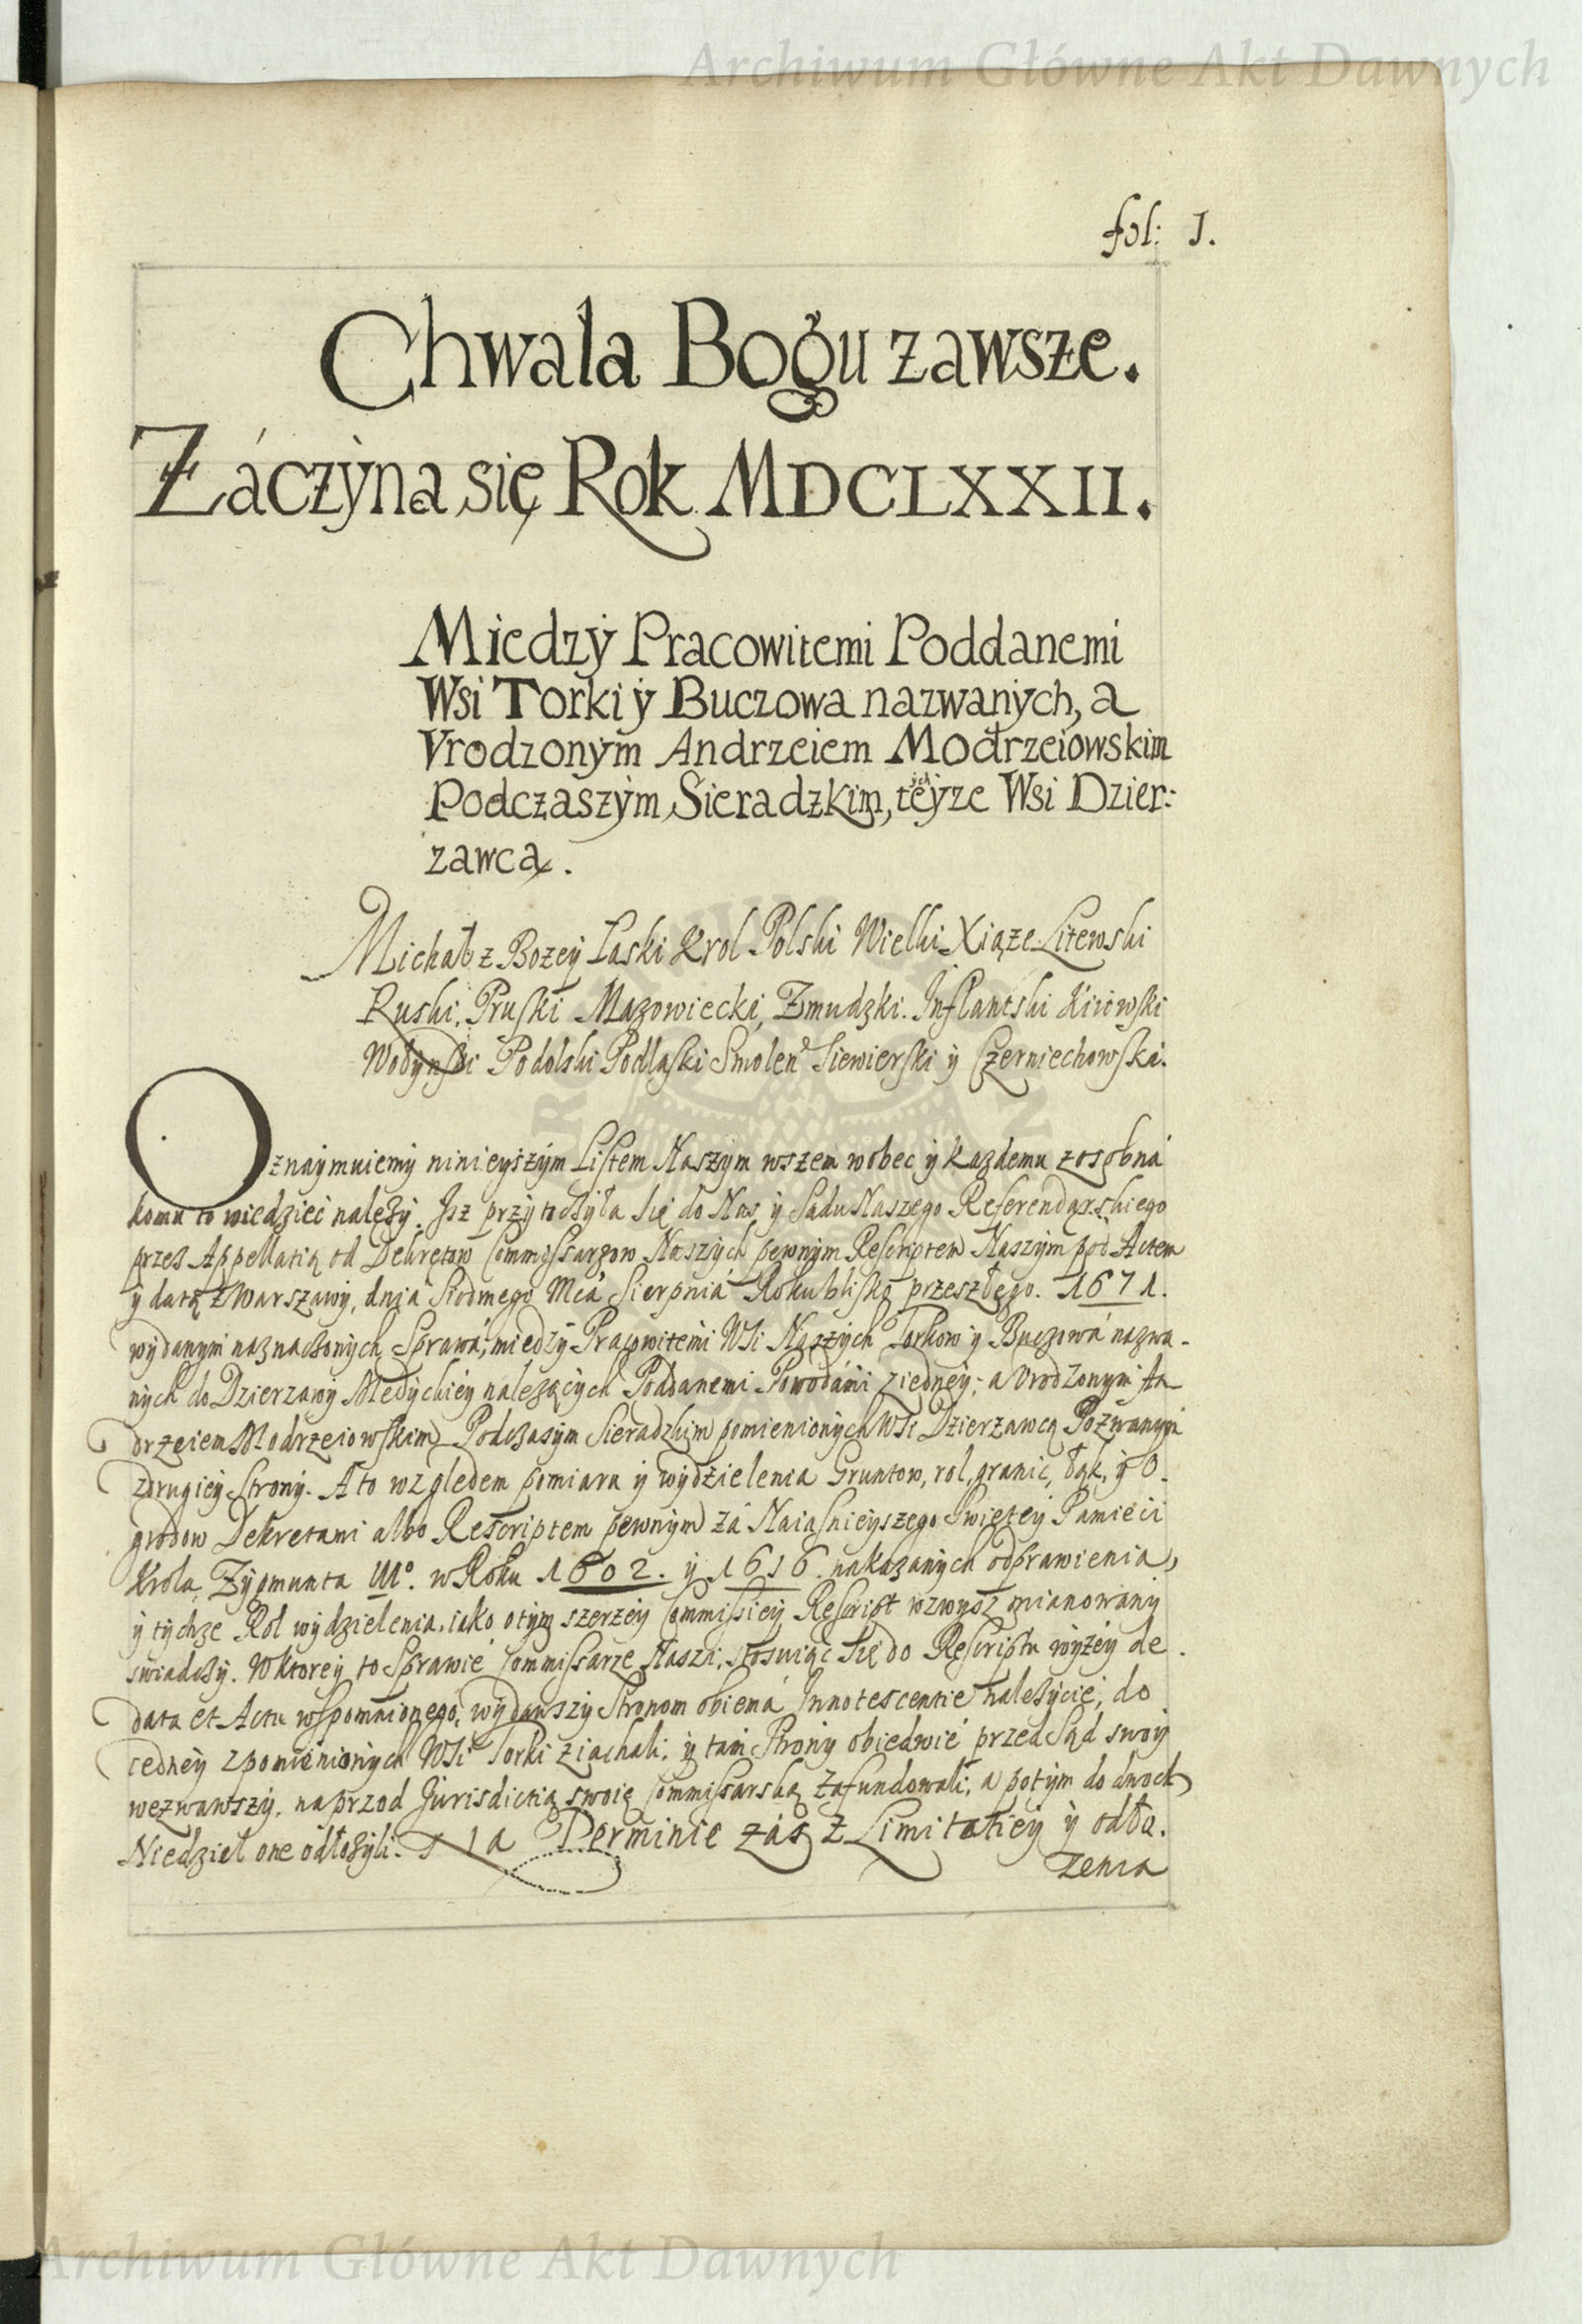 Archiwum Główne Akt Dawnych
fol: 1.
Chwala Bogu zawsze.
Záczÿna się Rok MDCLXXII.
Miedzÿ Pracowitemi Poddanemi
Wsi Torki ÿ Buczowa nazwanÿch, a
Vrodzonÿm Andrzeiem Modrzeiowskim
Podczaszÿm Sieradzkim, teÿze Wsi Dzier:
zawcą.
Michał z Bozeÿ Laski Krol Polski Wielki Xiąze Litewski
Ruski, Pruski Mazowiecki, Zmudzki. Inflantski Kiiowski
Wołynski Podolski Podlaski Smolen Siewierski ÿ Czerniechowski.
Oznaÿmuiemÿ ninieÿszÿm Listem Naszÿm wszem wobec ÿ kazdemu zosobná
komu to wiedzieć nalezÿ. Isz przÿtoczÿła się do Nas ÿ Sądu Naszego Referendarskiego
przez Appellatią od Dekretow Commissarzow Naszÿch pewnÿm Rescriptem Naszÿm pod Actem
ÿ datą z Warszawÿ, dnia Siodmego Mcá Sierpniá Roku blisko przeszłego. 1671.
wÿdanÿm naznaczonÿch Sprawá, miedzÿ Pracowitemi Wsi Naszÿch Torkow ÿ Buczowá nazwa-
nÿch do Dzierzawÿ Medÿckieÿ nalezącÿch Poddanemi Powodámi ziedneÿ; a Vrodzonÿm An
drzeiem Modrzeiowskim Podczaszÿm Sieradzkim pomienionÿch Wsi Dzierzawcą Pozwanÿm
zdrugieÿ Stronÿ. A to wzgledem pomiaru ÿ wÿdzielenia Gruntow, rol, granic, łąk, ÿ O-
grodow Dekretami albo Rescriptem pewnÿm zá Naiasnieÿszego Swięteÿ Pamięci
Krola Zÿgmunta IIIº. w Roku 1602. ÿ 1616. nakazanÿch odprawienia,
ÿ tÿchze Rol wÿdzielenia, iako otÿm szerzeÿ Commissieÿ Rescript wzwÿsz mianowanÿ
swiadczÿ. W ktoreÿ to Sprawie Commissarze Naszi, stosuiąc się do Rescriptu wÿzeÿ de
data et Actu wspomnionego, wÿdawszÿ Stronom obiema Innotescentie nalezÿcie, do
iedneÿ z pomienionÿch Wsi Torki ziachali, ÿ tam Stronÿ obiedwie przed Sąd swoÿ
wezwawszÿ, naprzod Jurisdictią swoię Commissarską zafundowali, a potÿm do dwoch
Niedziel one odłozÿli. Na Terminie záś z Limitatieÿ ÿ odło.
zenia
Archiwum Główne Akt Dawnych